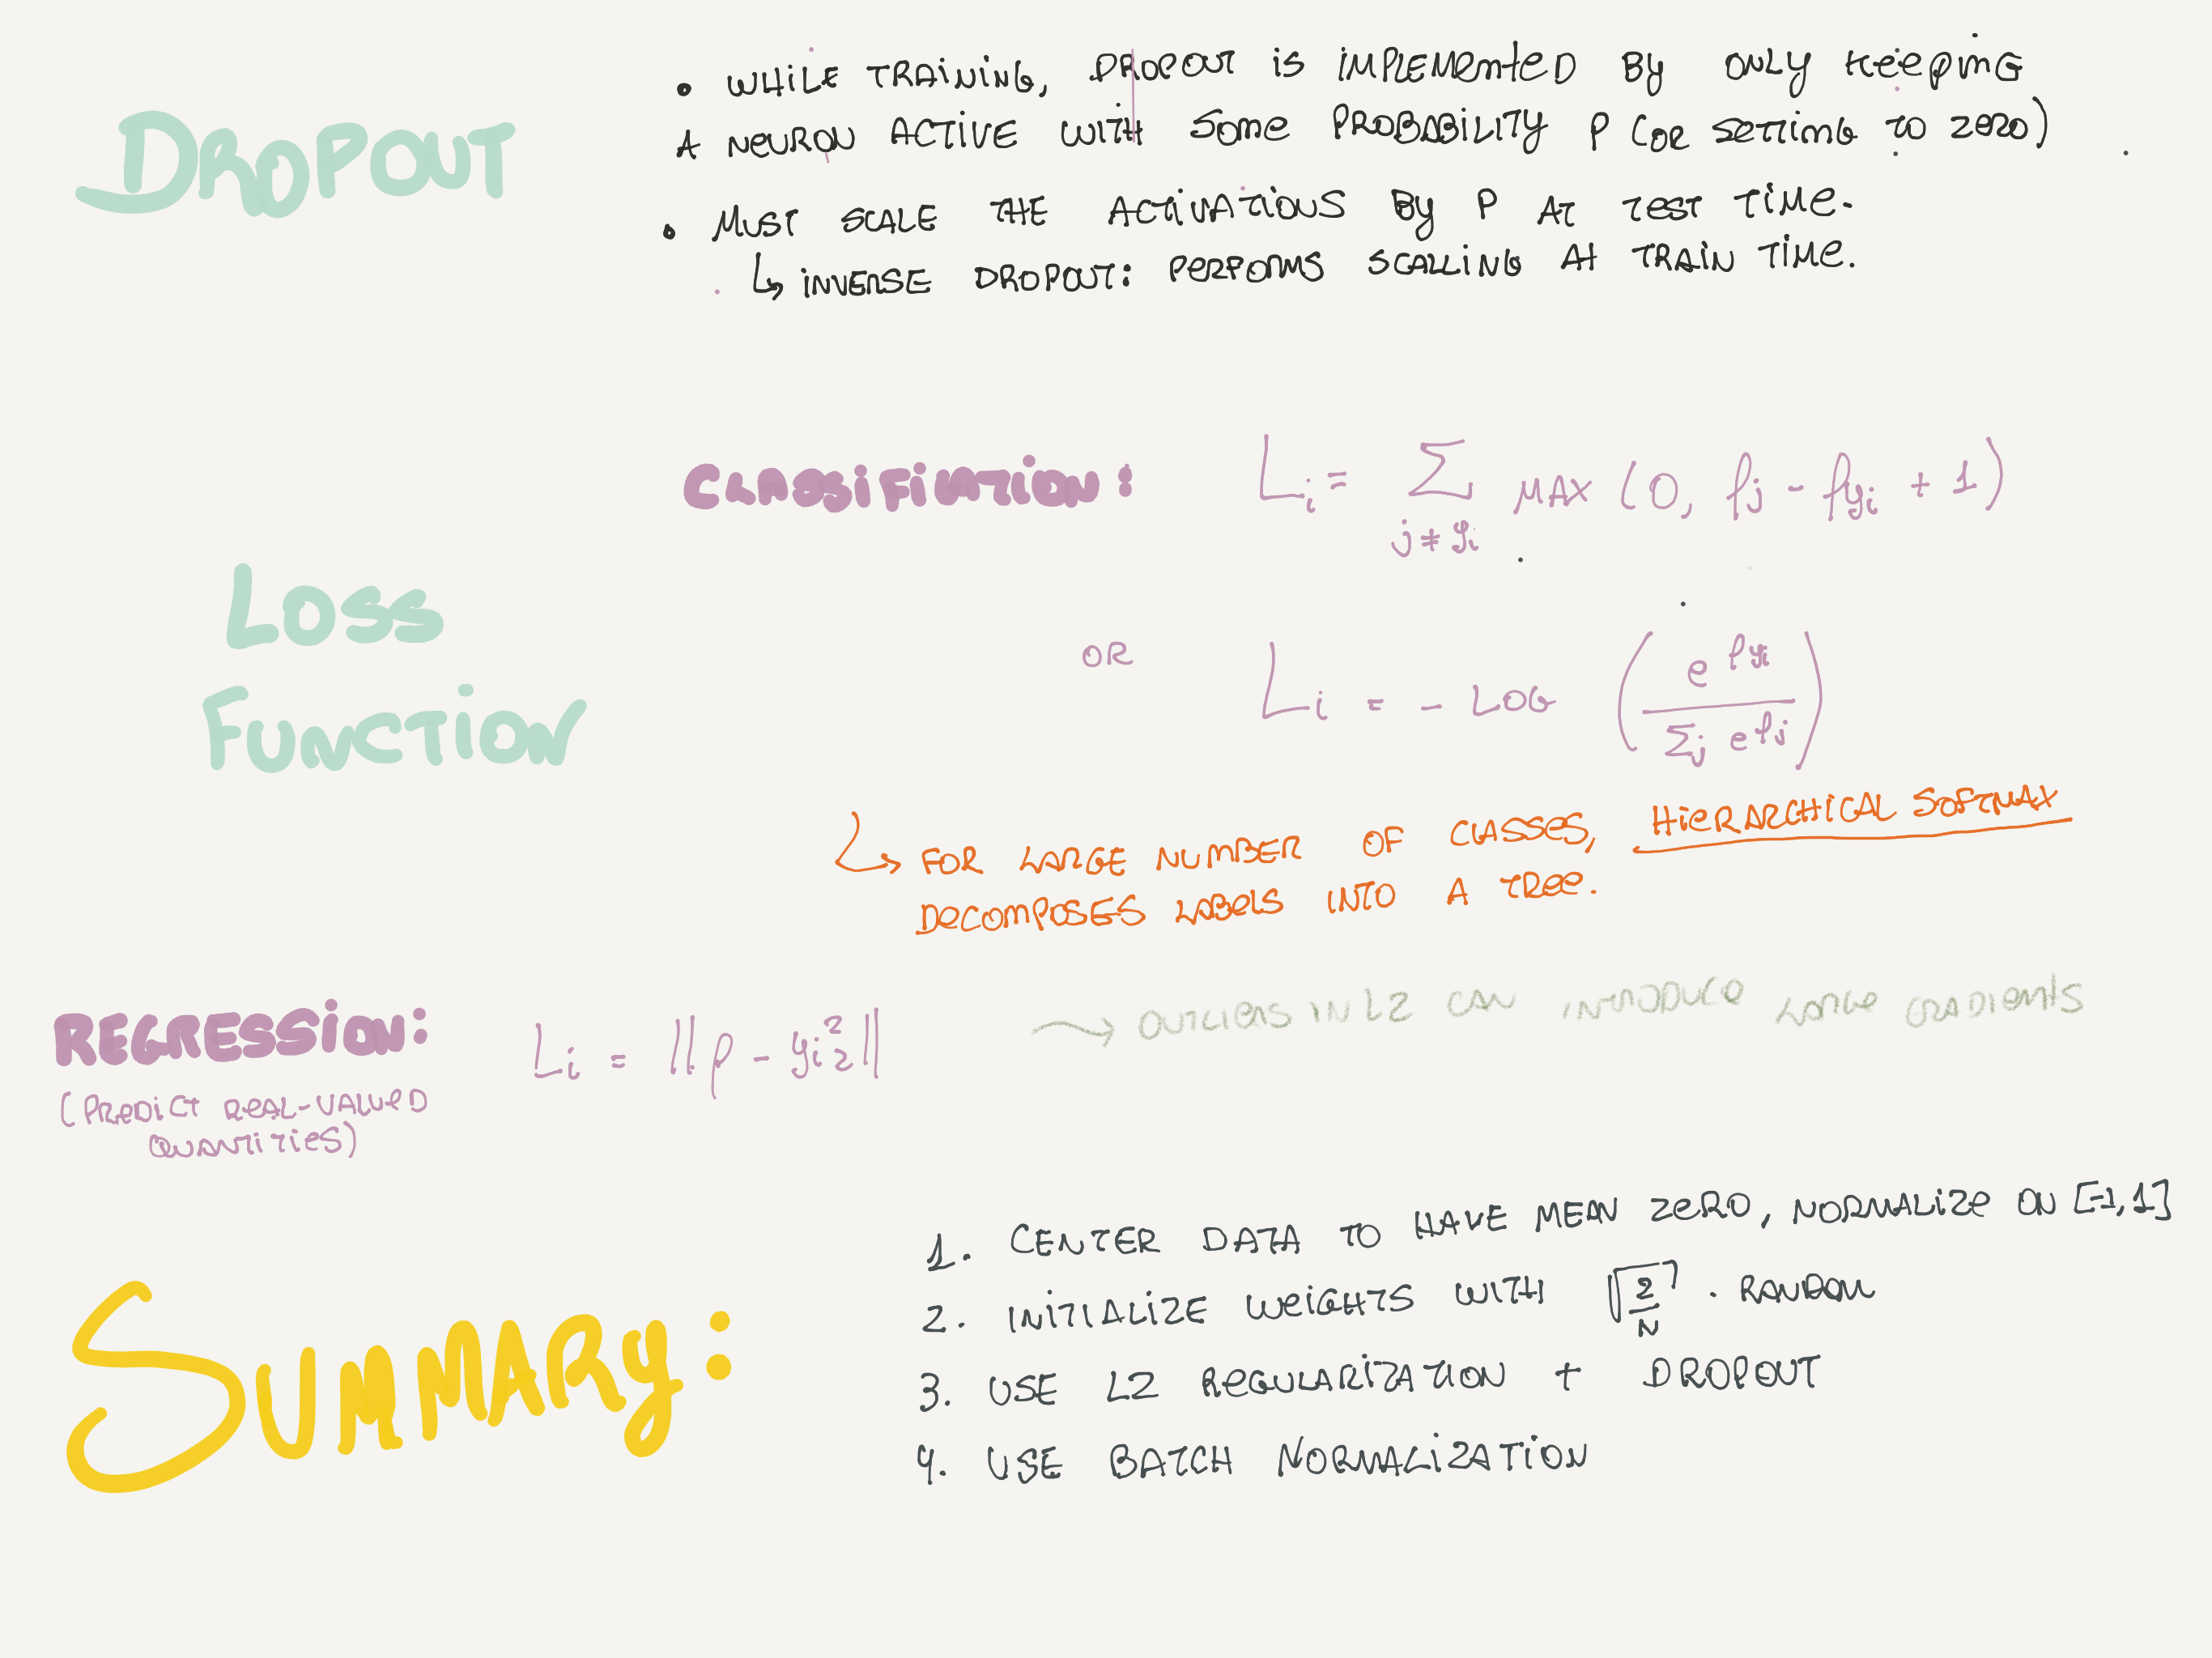 DROPOUT
• WHILE TRAINING, DROPOUT IS IMPLEMENTED BY ONLY KEEPING
A NEURON ACTIVE WITH SOME PROBABILITY P (OR SETTING TO ZERO)
• MUST SCALE THE ACTIVATIONS BY P AT TEST TIME.
↳ INVERSE DROPOUT: PERFORMS SCALLING AT TRAIN TIME.
LOSS
FUNCTION
CLASSIFICATION: L_i = Σ_{j≠y_i} MAX (0, f_j - f_{y_i} + 1)
OR L_i = - LOG (e^{f_{y_i}} / Σ_j e^{f_j})
↳ FOR LARGE NUMBER OF CLASSES, HIERARCHICAL SOFTMAX
DECOMPOSES LABELS INTO A TREE.
REGRESSION: L_i = ||f - y_i^2_2|| → OUTLIERS IN L2 CAN INTRODUCE LARGE GRADIENTS
(PREDICT REAL-VALUED
QUANTITIES)
SUMMARY:
1. CENTER DATA TO HAVE MEAN ZERO, NORMALIZE ON [-1,1]
2. INITIALIZE WEIGHTS WITH √(2/N) · RANDOM
3. USE L2 REGULARIZATION + DROPOUT
4. USE BATCH NORMALIZATION